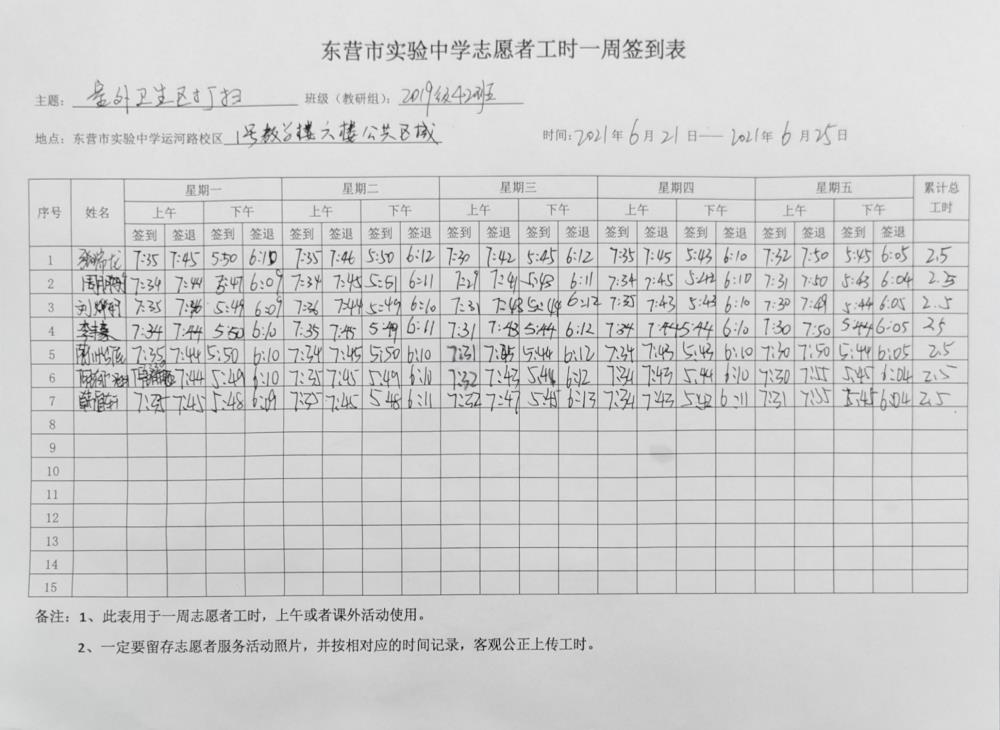 东营市实验中学志愿者工时一周签到表
主题：室外卫生区打扫 班级（教研组）：2019级42班
地点：东营市实验中学运河路校区 1号教学楼六楼公共区域 时间：2021年6月21日——2021年6月25日
序号 姓名 星期一 星期二 星期三 星期四 星期五 累计总工时
上午 下午 上午 下午 上午 下午 上午 下午 上午 下午
签到 签退 签到 签退 签到 签退 签到 签退 签到 签退 签到 签退 签到 签退 签到 签退 签到 签退 签到 签退
1 7:35 7:45 5:50 6:10 7:35 7:46 5:50 6:12 7:30 7:42 5:45 6:12 7:35 7:45 5:43 6:10 7:32 7:50 5:45 6:05 2.5
2 7:34 7:44 5:47 6:09 7:34 7:45 5:51 6:11 7:29 7:41 5:43 6:11 7:34 7:45 5:42 6:10 7:31 7:50 5:43 6:04 2.5
3 7:35 7:46 5:49 6:09 7:36 7:44 5:49 6:10 7:31 7:43 5:44 6:12 7:35 7:43 5:43 6:10 7:30 7:49 5:44 6:05 2.5
4 7:34 7:44 5:50 6:10 7:35 7:45 5:49 6:11 7:31 7:43 5:44 6:12 7:34 7:44 5:44 6:10 7:30 7:50 5:44 6:05 2.5
5 7:35 7:44 5:50 6:10 7:34 7:45 5:50 6:10 7:31 7:45 5:44 6:12 7:34 7:43 5:43 6:10 7:30 7:50 5:44 6:05 2.5
6 7:44 5:49 6:10 7:35 7:45 5:49 6:10 7:32 7:43 5:44 6:12 7:34 7:43 5:44 6:10 7:30 7:55 5:45 6:04 2.5
7 7:35 7:45 5:48 6:09 7:35 7:45 5:48 6:11 7:32 7:47 5:45 6:13 7:34 7:43 5:42 6:11 7:31 7:55 5:45 6:04 2.5
8
9
10
11
12
13
14
15
备注：1、此表用于一周志愿者工时，上午或者课外活动使用。
2、一定要留存志愿者服务活动照片，并按相对应的时间记录，客观公正上传工时。